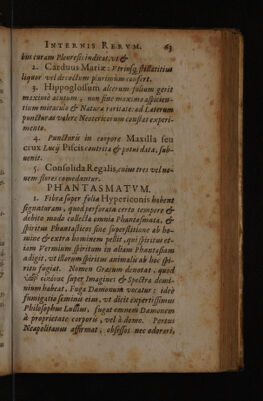 INTERNIS RERVM. 63
bus curam Pleuresis indicat, ut &
2. Carduus Mariæ: Vtriusq; stillatitius
liquor vel decoctum plurimum confert.
3. Hippoglossum alterum folium gerit
maxime acutum, non sine maxima aspicien-
tium miratu & Naturæ raritate: ad Laterum
puncturas valere Neotericorum constat experi-
mento.
4. Puncturis in corpore Maxilla seu
crux Lucij Piscis contrita & potui data, sub-
uenit.
5. Consolida Regalis, cuius tres vel no-
uem flores comedantur.
PHANTASMATVM.
1. Fibræ super folia Hypericonis habent
signaturam, quod perforata certo tempore &
debito modo collecta omnia Phantasmata, &
spiritus Phantasticos sine superstitione ab ho-
mine & extra hominem pellit, qui spiritus et-
iam Vermium spiritum in altum Phantasiam
adigit, ut illorum spiritus animalis ab hoc spi-
ritu fugiat. Nomen Græcum denotat, quod
super Imagines & Spectra domi-
nium habeat. Fuga Dæmonum vocatur: ideo
fumigatio seminis eius, ut dicit expertissimus
Philosophus Lullius, fugat omnem Dæmonem
à proprietate corporis, vel à domo. Portus
Neapolitanus affirmat, obsessos nec odorari,